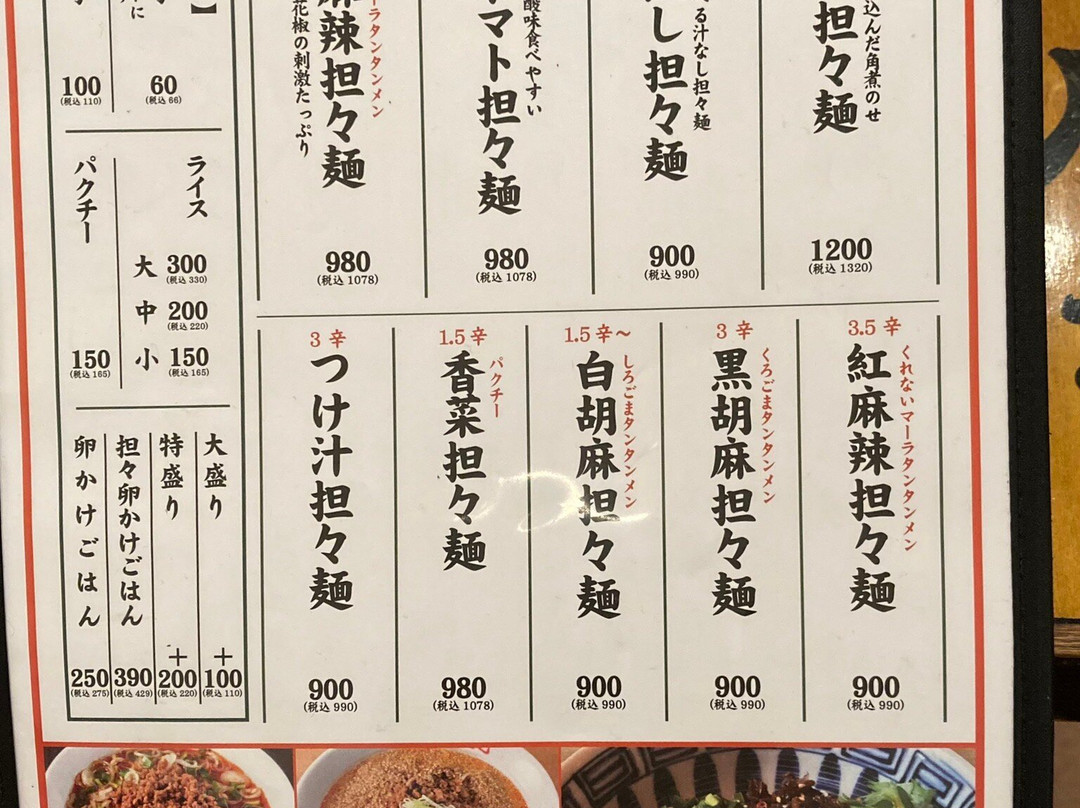 込んだ角煮のせ
担々麺
1200
(税込 1320)
る汁なし担々麺
し担々麺
900
(税込 990)
酸味食べやすい
マト担々麺
980
(税込 1078)
ーラタンタンメン
麻辣担々麺
花椒の刺激たっぷり
980
(税込 1078)
3.5 辛
くれないマーラタンタンメン
紅麻辣担々麺
900
(税込 990)
3 辛
くろごまタンタンメン
黒胡麻担々麺
900
(税込 990)
1.5 辛～
しろごまタンタンメン
白胡麻担々麺
900
(税込 990)
1.5 辛
パクチー
香菜担々麺
980
(税込 1078)
3 辛
つけ汁担々麺
900
(税込 990)
】
60
(税込 66)
に
100
(税込 110)
ライス
大 300
(税込 330)
中 200
(税込 220)
小 150
(税込 165)
パクチー
150
(税込 165)
大盛り
＋100
(税込 110)
特盛り
＋200
(税込 220)
担々卵かけごはん
390
(税込 429)
卵かけごはん
250
(税込 275)